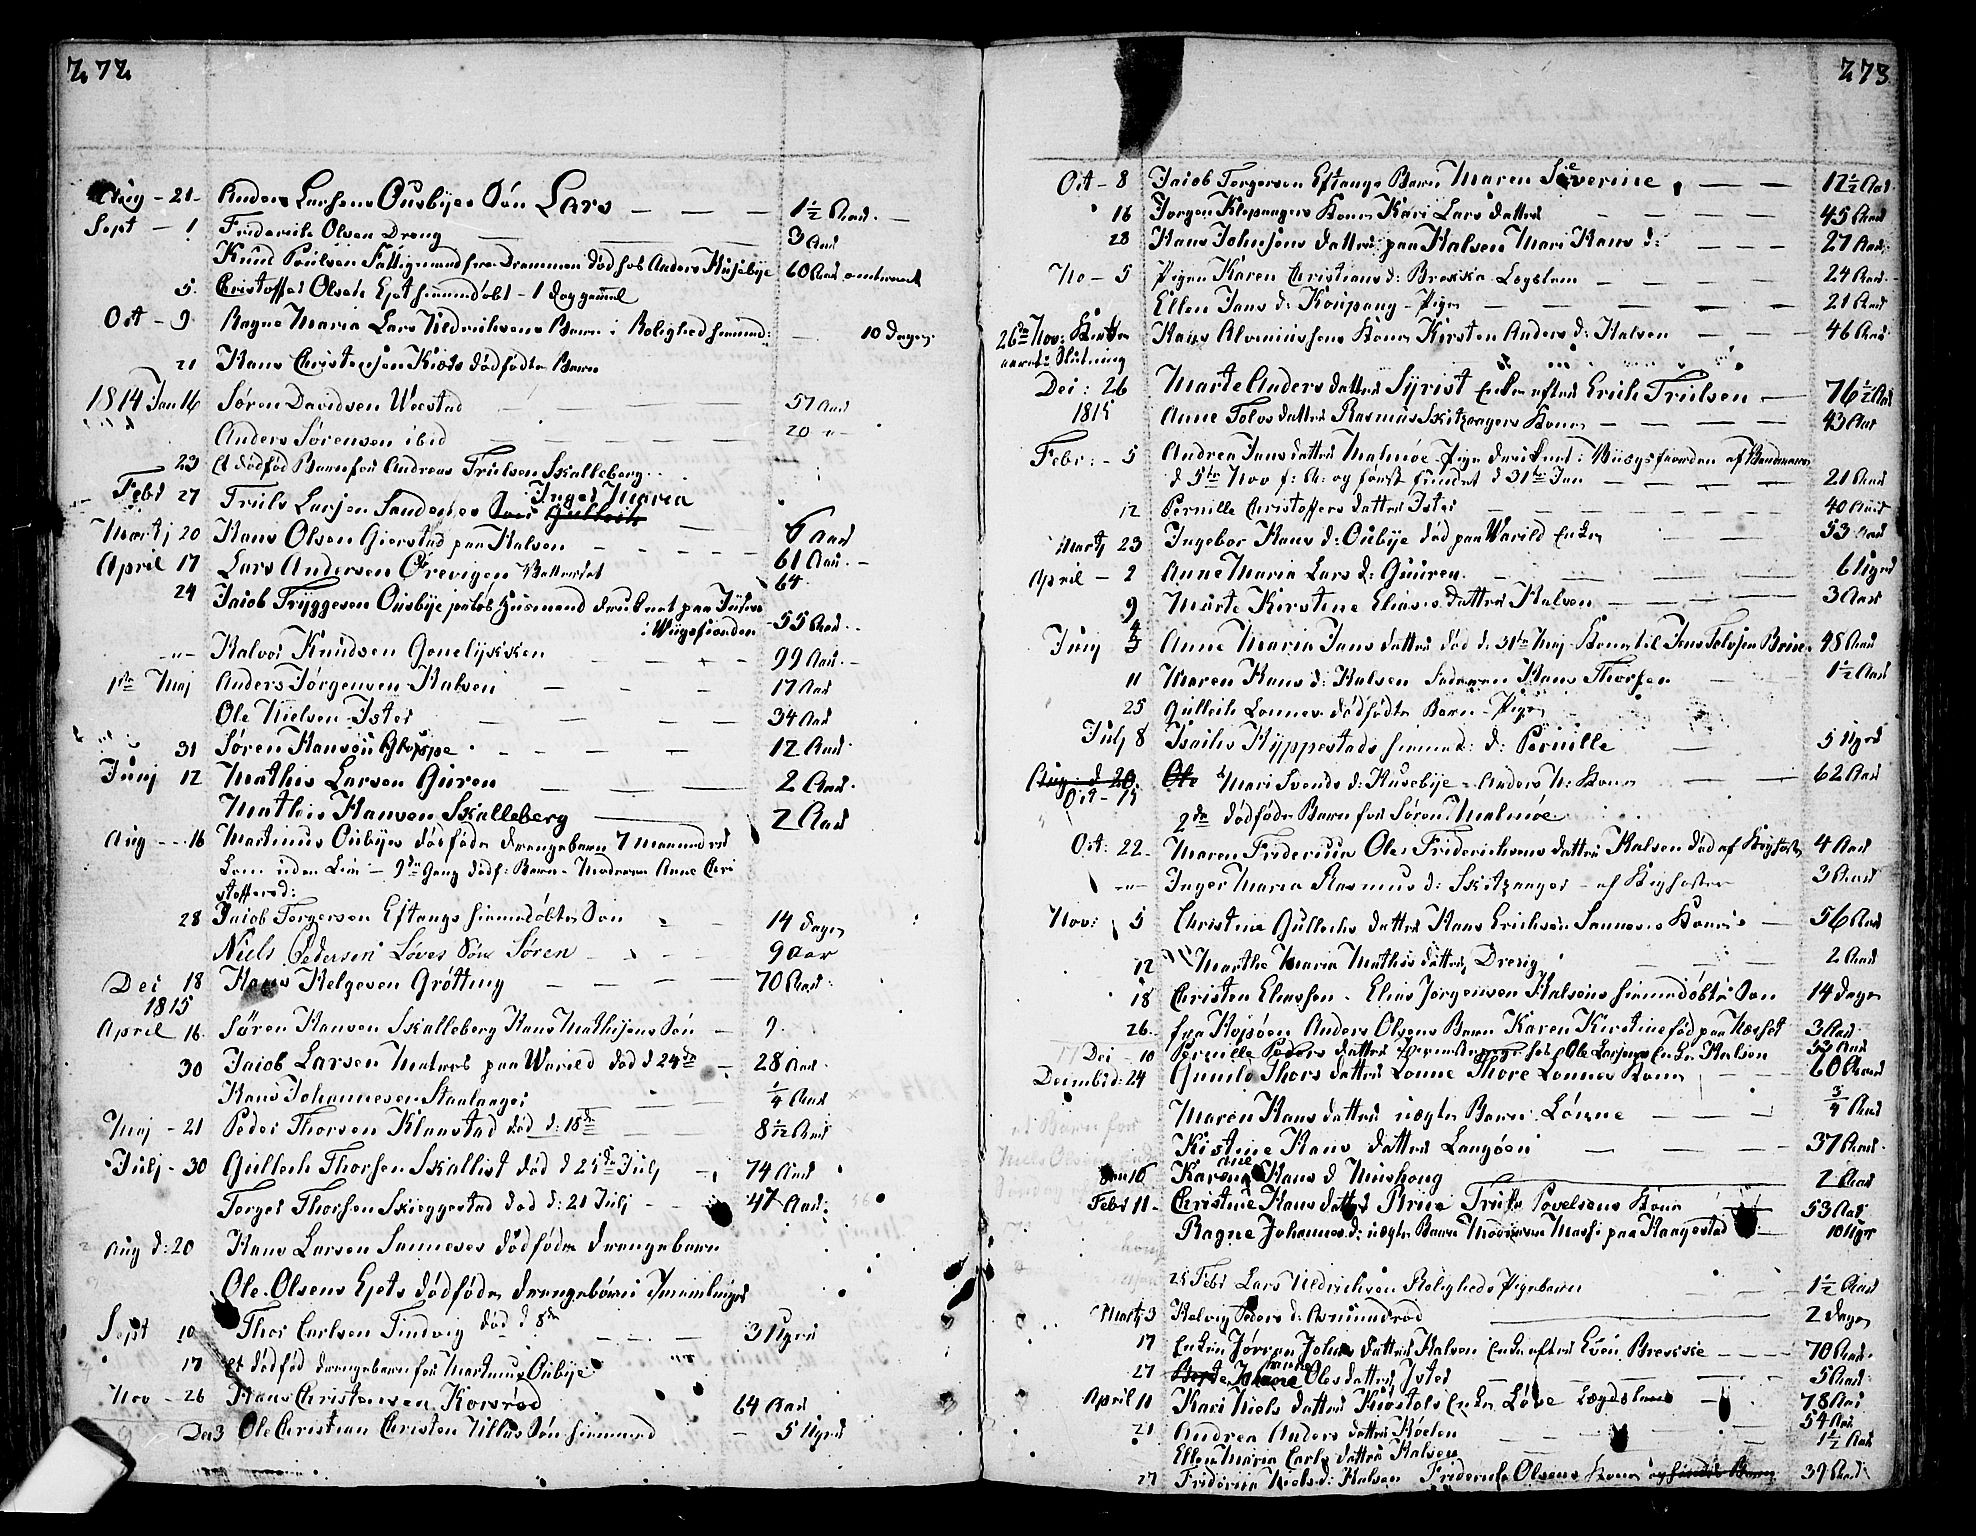 272
Aug - 21 - Anders Larsens Ousbyes Søn Lars - - - 1½ Aar. -
Sept - 1 Friderich Olsen Dreng - 3 Aar
Knud Poulsen Fattigmand fra Drammen død hos Anders Husebye 60 Aar omtrent
5. Christoffer Olsen Ejet hiemmedøbt - 1 dag gammel
Oct - 9 Ragne Maria Lars Uldrichsens Barn i Rolighed hiemmed: - 10 Dage
21 Hans Christensen Kiøts dødfødte Barn
1814 Jan 16 Søren Davidsen Weestad - 57 Aar
Anders Sørensen ibid - 20 "-
23 et dødfød Barn for Andreas Trulsen Skalleberg
Febr 27 Truls Larsen Sandenes Inger Maria
Martj 20 Hans Olsen Gierstad paa Halsen - 6 Aar
April 17 Lars Andersen Ørevigen - 61 Aar. -
64
24 Jacob Tryggesen Ousbye Husmand druknet paa
i Wiigsfiorden - 55 Aar. -
-"- Halvor Knudsen Gonelykken - 99 Aar. -
1ste Maj Anders Jørgensen Halsen - 17 Aar
Ole Nielsen Ister - 34 Aar
31 Søren Hansen Gloppe - 12 Aar
Junj 12 Mathis Larsen Guren - 2 Aar.
Mathis Hansen Skalleberg - 2 Aar
Aug - 16 Martinus Oubyes dødfødte drengebarn 7 Maaneders
uden Liv - 9de Gang dødf: Barn - Moderen Anne Chri
stoffersd:
28 Jacob Torgersen Eftangs hiemmedøbte Søn - 14 Dage
Niels Pedersen Løves Søn Søren - 9 Aar
Dec 18 Hans Helgesen Grøtting - 70 Aar.
1815
April 16. Søren Hansen Skalleberg Hans Mathisens Søn - 9.
30 Jacob Larsen Matros paa Warild død d 24de - 28 Aar.
Hans Johannesen Staalaager - ¼ Aar
Maj - 21 Peder Thorsen Klaastad død d: 18de - 8½ Aar
Julj - 30 Gullech Thorsen Skallist død d 25de Julj - 74 Aar
Torger Thorsen Skieggestad død d: 21 Julj - 47 Aar.
Aug d: 20 Hans Larsen Sanneses dødfødte drengebarn
Ole Olsens Ejets dødfødte drengebørn Tvemlinger
Sept 10 Thor Carlsen Tindvig død d 8de - 3 Uger
17 et dødfød drengebarn for Martinus Oubye
Nov - 26 Hans Christensen Kowrød 64 Aar
Dec 3 Ole Christian Christen Ullas Søn hiemmed - 5 Uger
273
Oct - 8 Jacob Torgersen Eftangs Barn Maren Severine - 12½ Aar.
16 Jørgen Klepaagers Kone Kari Lars datter - 45 Aar
28 Hans Johnsens datter paa Halsen Mari Hans d: - 27 Aar.
No - 5 Pigen Karen Christians d: Brekka Legslem - 24 Aar -
Ellen Jans d: Kaupang - Pige - 21 Aar
26de Nov: Kirke Hans Kone Kirsten Anders d: Halsen - 46 Aar
aarets Slutning
Dec: 26 Marte Anders datter Syrist Enke efter Erich Trulsen - 76½ Aar
1815 Anne Tolvs datter Rasmus Skitzaagers Kone - 43 Aar
Febr: - 5 Andrea Jans datter Malmøe Pige druknet i Viigsfiorden af
d 5te Nov f: A: og først fundet d 31te Jan - 21 Aar
12 Pernille Christoffers datter Ister - 40 Aar
Martj 23 Ingebor Hans d: Oubye død paa Warild Enke - 53 Aar
April - 2 Anne Maria Lars d: Guuren - 6 Uger
9 Marte Kirstine Elias datter Halsen - 3 Aar
Junj 4 Anne Maria Jans datter død d: 31te Maj Kone til Jens Tolvsen - 48 Aar
11 Maren Hans d: Halsen Faderen Hans Thorsen - 1½ Aar
25 Gullich Lonnes dødfødte Barn - Pige
Julj 8 Isachs Hyppestads hiemmed: d: Pernille - 5 Uger
Aug: d 20 Ole
Oct - 15 Mari Svends d: Husebye - Anders N: Kone - 62 Aar
2de dødfødte Barn for Søren Malmøe
Oct: 22 - Maren Fridericia Ole Friderichsens datter Halsen død af Kighoste 4 Aar
-"- Inger Maria Rasmus d: Skitzaager - af Kighosten 3 Aar
Nov: 5 Christine Gullechs datter Hans Erichsen Sannes's Kone - 56 Aar
12 Marthe Maria Mathis datter Dresig - 2 Aar
18 Christen Eliassen - Elias Jørgensen Halsens hiemmedøbte Søn 14 Dage
26 - fra Kopøen Anders Olsens Barn Karen Kirstine fød paa Næsset 3 Aar
Dec - 10 Pernille Peders datter hos Ole Larsens Enke Halsen 53 Aar
Decembr: 24 Gunild Thors datter Lonne Thore Lonnes Kone - 60 Aar
Maren Hans datter uægte Barn Lønne - ¾ Aar
Kistine Hans datter Langøen - 37 Aar.
Jan 16 Karen Hans d Muskaug - 2 Aar
Febr 11 - Christine Hans datter Bruse Truls Povelsens Kone - 53 Aar
Ragne Johannes d: uægte Barn Moderen Mari paa Haagestad - 10 Uger
25 Febr Lars Uldrichsen Roligheds Pigebarn - 1½ Aar
Martj 3 Helvig Peders d: Asmundrød - 2 Dage
17 Enken Jørren Johns datter Halsen Enke efter Even Brekke - 70 Aar.
27 Berte Johanne Ols datter Ister - 5 Aar.
April 11 Kari Niels datter Kiøstols Enke Løve Legdslem - 78 Aar
21 Andrea Anders datter Røelen - 54 Aar
Ellen Maria Carls datter Halsen - 1½ Aar
27 Fridericia Niels d: Halsen Friderich Olsens Kone og hendes Barn 39 Aar